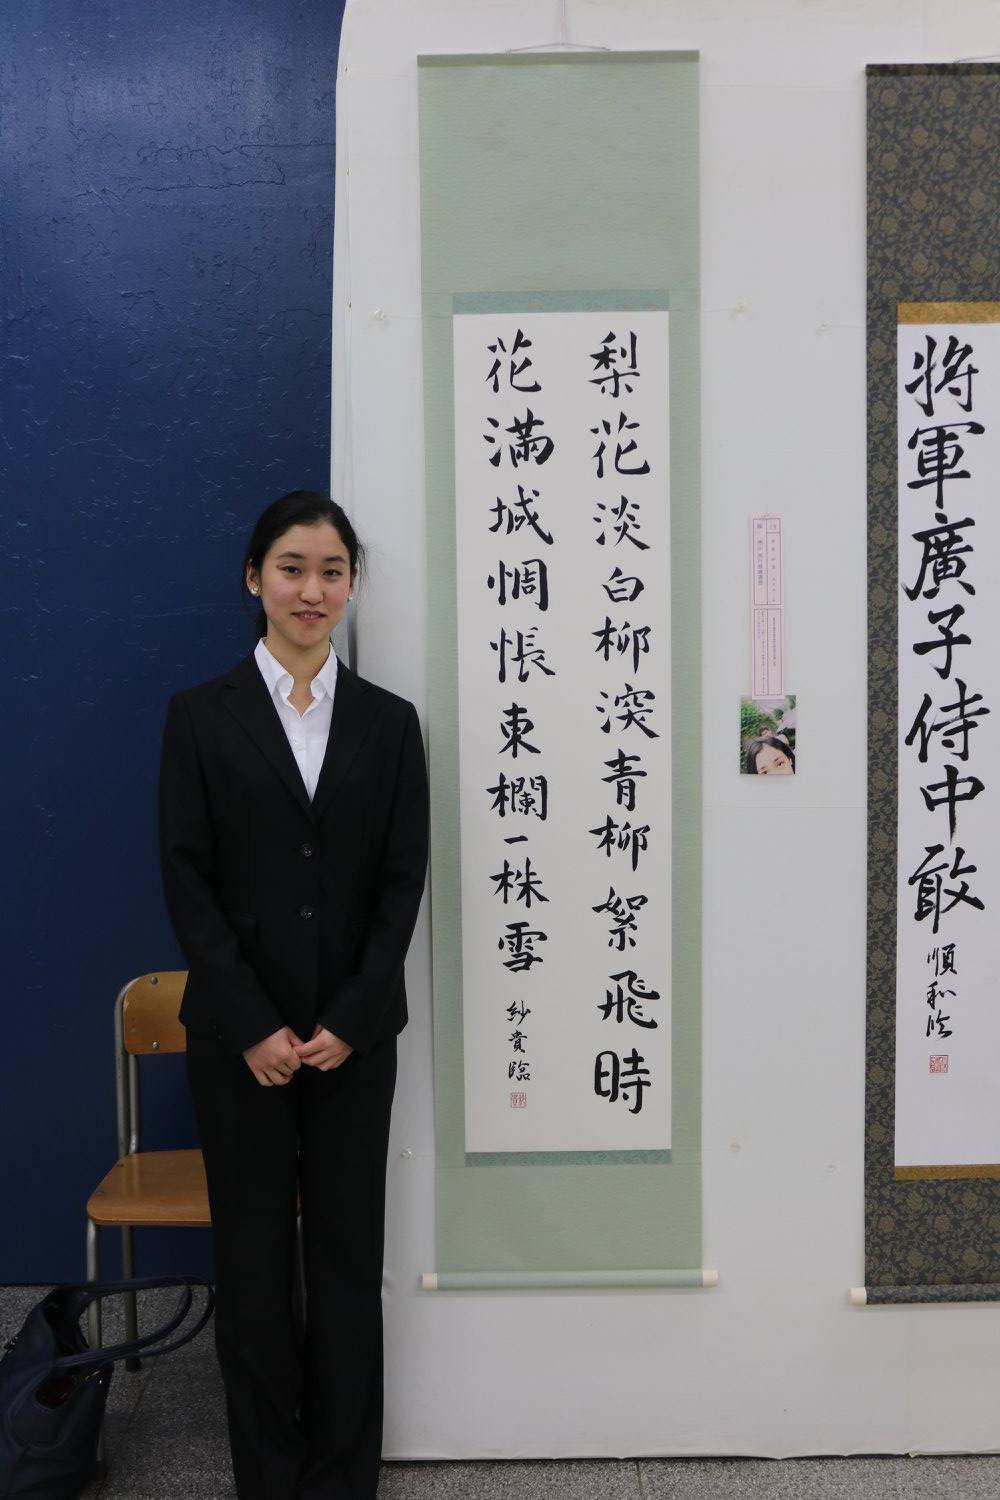 將軍廣子侍中敢
順和臨
梨花淡白柳深青柳絮飛時
花滿城惆悵東欄一株雪
紗貴臨